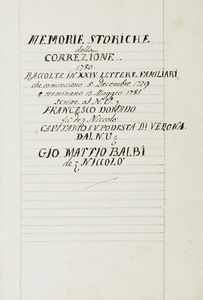 MEMORIE STORICHE
della
CORREZIONE
1780
RACCOLTE IN XXIV LETTERE FAMILIARI,
che cominciano 5. Decembre 1779
e terminano 13 Maggio 1781.
Scritte al N. U.
FRANCESCO DONADO
fù de Niccolò
CAPITANIO E V. PODESTA DI VERONA
DAL N. U.
GIO MATTIO BALBI
de Niccolò